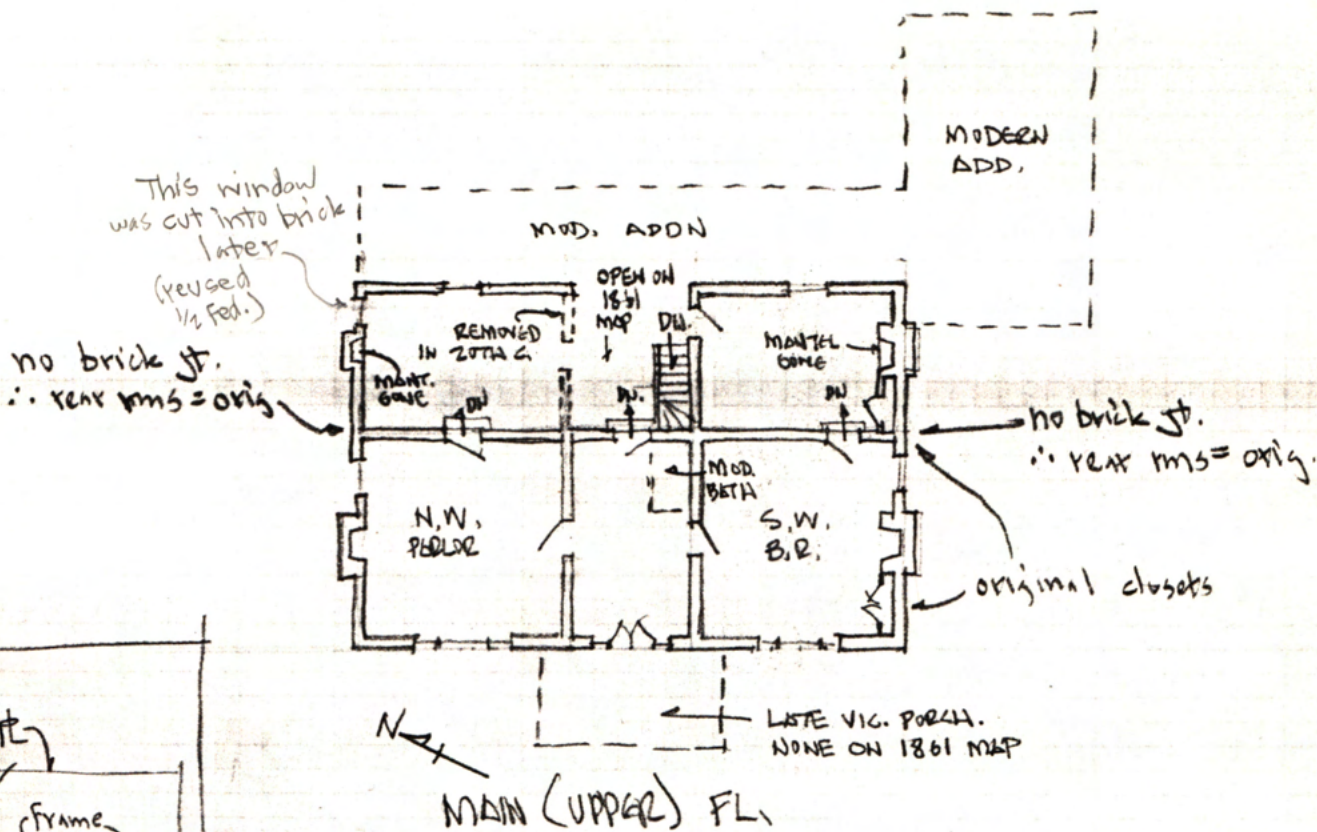 MODERN
ADD.
This window
was cut into brick
later
(reused
1/2 Fed.)
MOD. ADDN
OPEN ON
1861
MAP
DN.
REMOVED
IN 20TH C.
MANTEL
GONE
MANT.
GONE
DN
DN.
DN
no brick jt.
∴ rear rms = orig
no brick jt.
∴ rear rms = orig.
MOD.
BATH
N.W.
PARLOR
S.W.
B.R.
original closets
LATE VIC. PORCH.
NONE ON 1861 MAP
N
MAIN (UPPER) FL.
frame